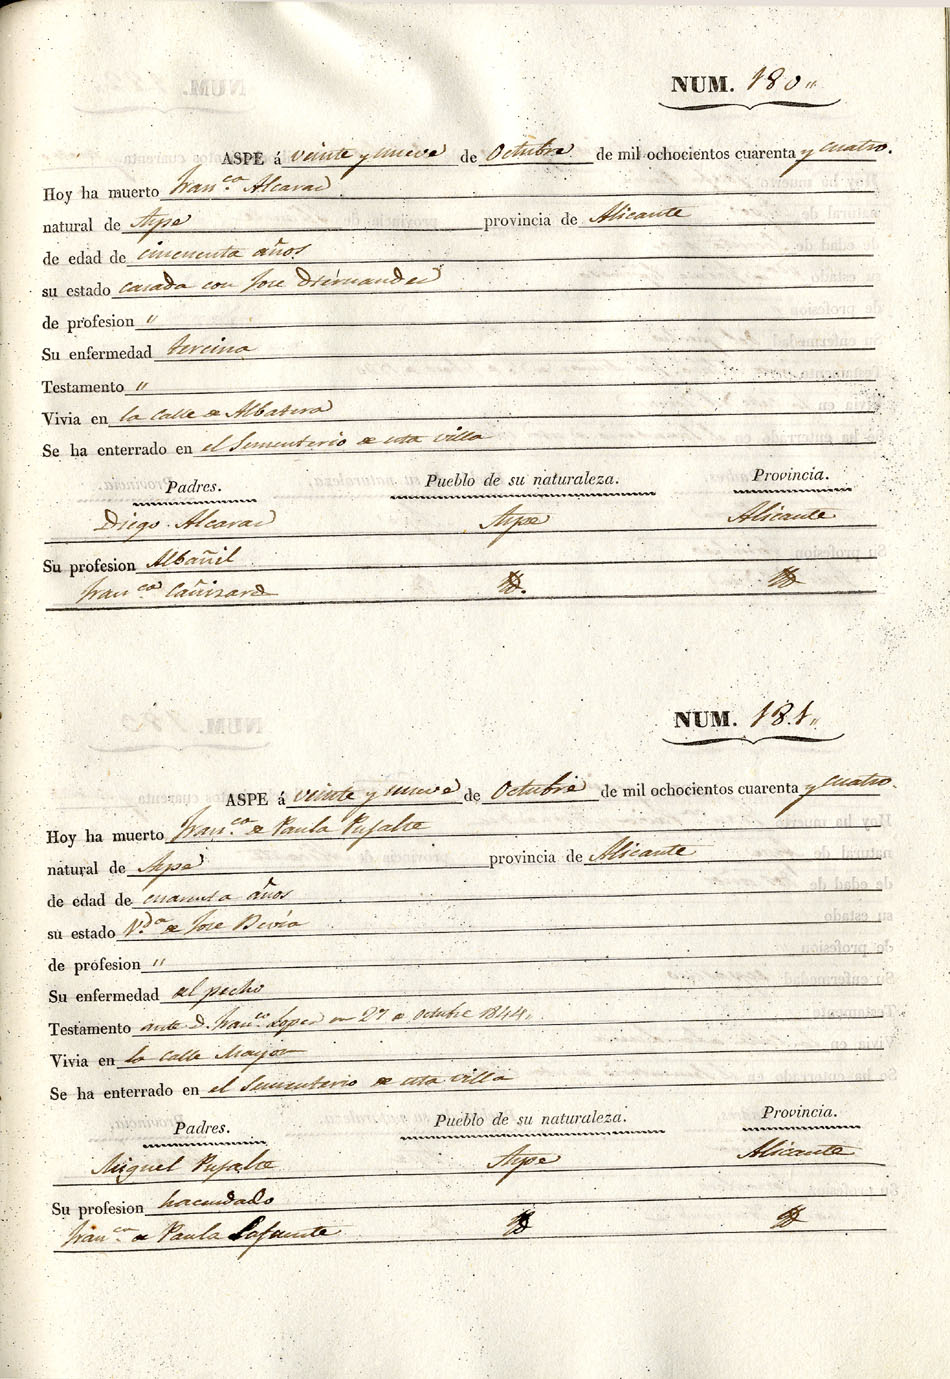 NUM. 180.,,
ASPE á veinte y nueve de Octubre de mil ochocientos cuarenta y cuatro.
Hoy ha muerto Fran.ca Alcaraz
natural de Aspe provincia de Alicante
de edad de cincuenta años
su estado casada con Jose
de profesion "
Su enfermedad terciana
Testamento "
Vivia en la Calle de Albatera
Se ha enterrado en el Sementerio de esta villa
Padres. Pueblo de su naturaleza. Provincia.
Diego Alcaraz Aspe Alicante
Su profesion Albañil
Fran.ca Cañizares Yd. Yd.
NUM. 181.,,
ASPE á veinte y nueve de Octubre de mil ochocientos cuarenta y cuatro.
Hoy ha muerto Fran.ca de Paula Pujalte
natural de Aspe provincia de Alicante
de edad de cuarenta años
su estado V.da de Jose Bevia
de profesion "
Su enfermedad del pecho
Testamento ante D. Fran.co Lopez en 27 de Octubre 1844.
Vivia en la calle Mayor
Se ha enterrado en el Sementerio de esta villa
Padres. Pueblo de su naturaleza. Provincia.
Miguel Pujalte Aspe Alicante
Su profesion hacendado
Fran.ca de Paula Lafuente Yd Yd